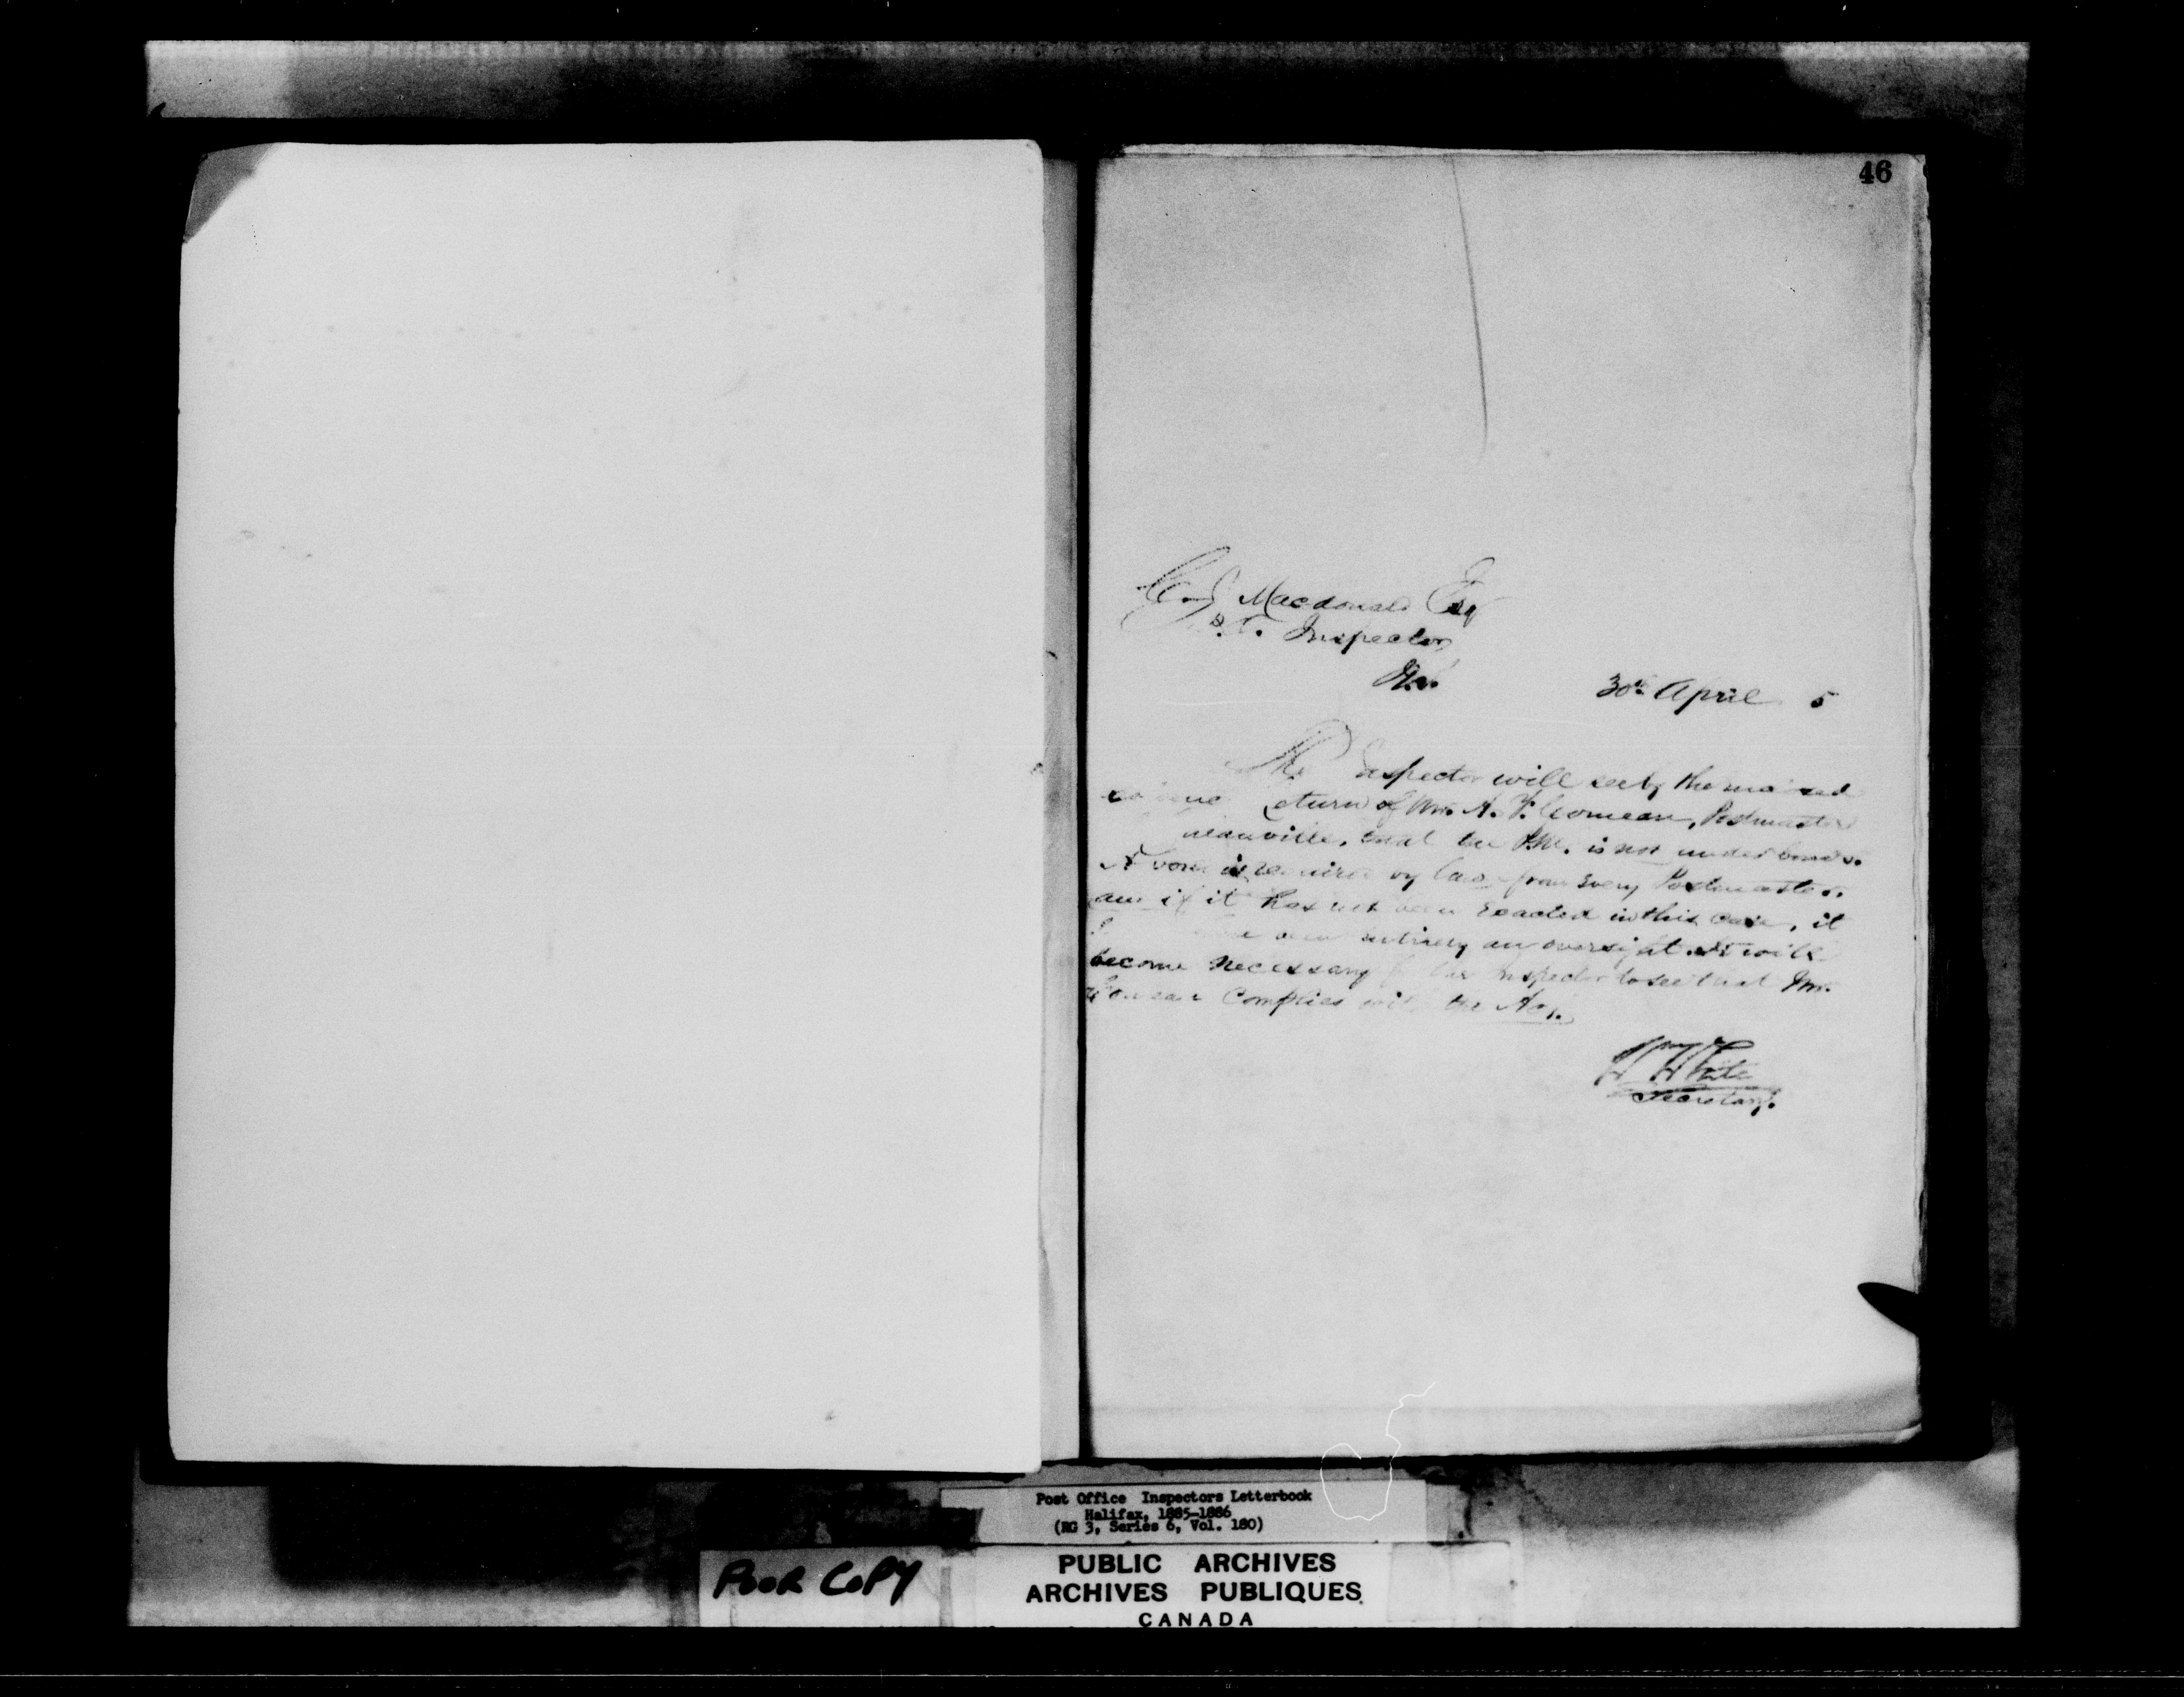 46
Macdonald Esq
P.O. Inspector
30th April 5
The Inspector will see by the
return of Mr. A. F. Comeau, Postmaster
that the P.M. is not under bonds.
A bond is required by law from every Postmaster.
and if it has not been exacted in this case, it
been entirely an oversight. It will
become necessary for the Inspector to see that Mr.
Comeau Complies with the
W White
Secretary.
Post Office Inspectors Letterbook
Halifax, 1885-1886
(RG 3, Series 6, Vol. 180)
POOR COPY
PUBLIC ARCHIVES
ARCHIVES PUBLIQUES
CANADA